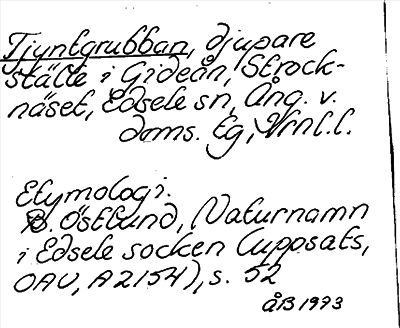 Tjyntgrubban, djupare
ställe i Gideån, Strock-
näset, Edsele sn, Ång. v.
doms. tg, Vrnl.l.
Etymologi.
B. Östlund, Naturnamn
i Edsele socken (uppsats,
OAU, A2154), s. 52
ÅB 1973